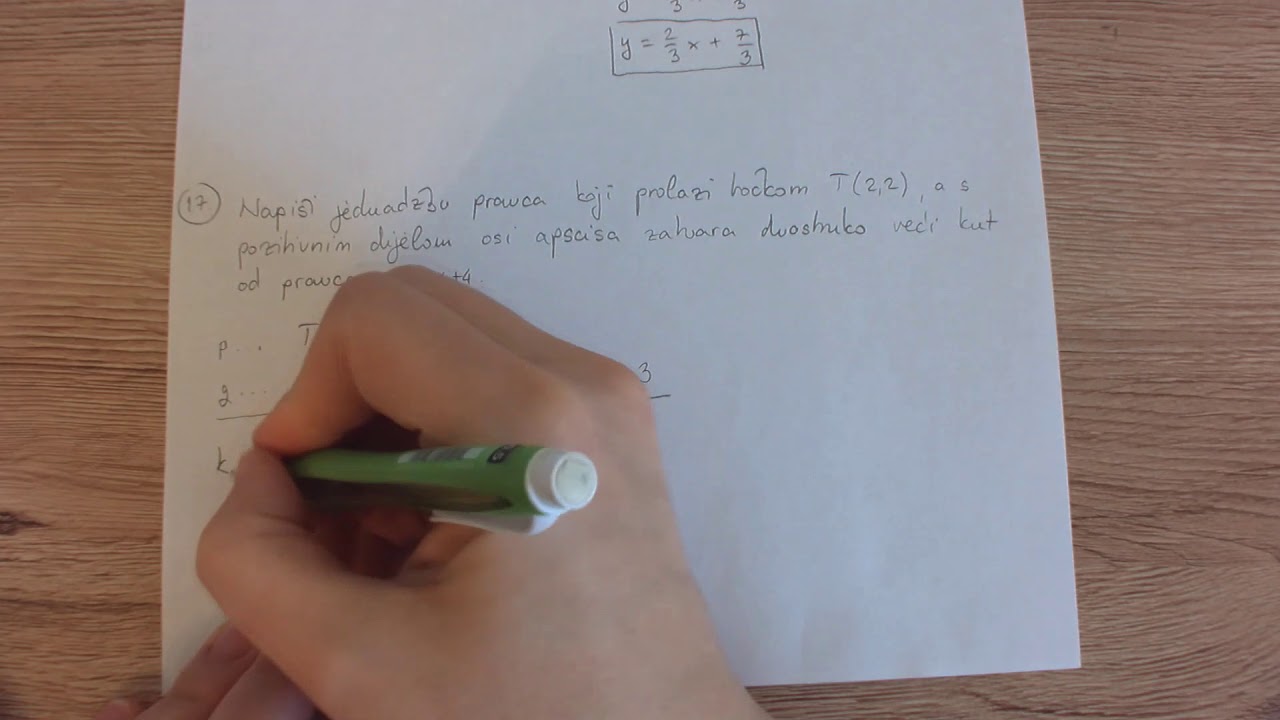 y = 2/3 x + 7/3
17 Napiši jednadžbu pravca koji prolazi točkom T(2,2), a s
pozitivnim dijelom osi apscisa zatvara dvostruko veći kut
od pravca +4.
p... T
g... 3
k